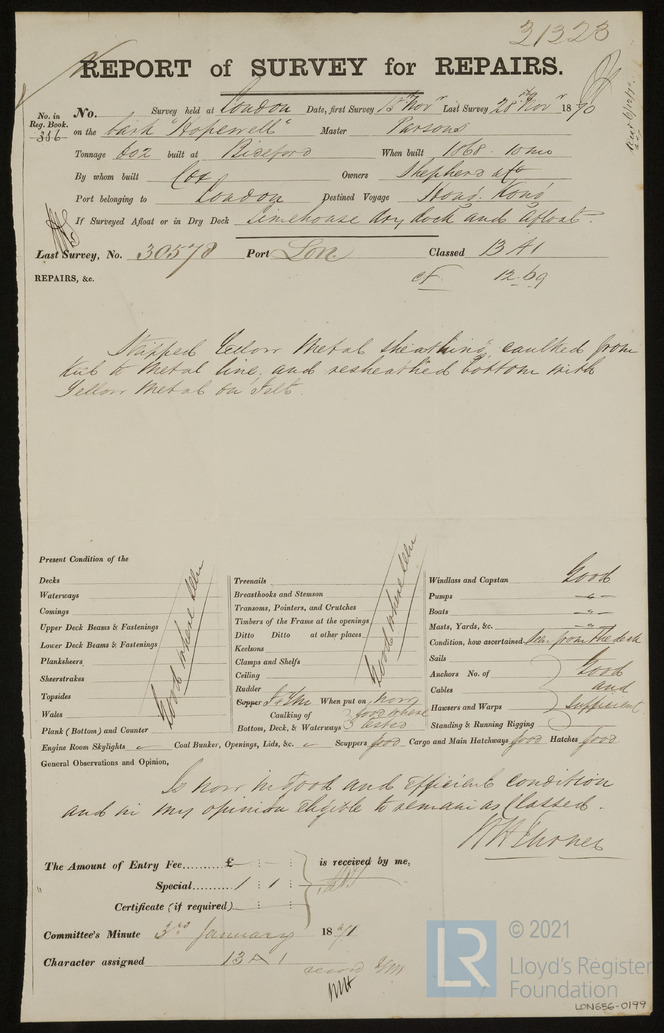 31323
REPORT of SURVEY for REPAIRS.
No. in Reg. Book. 356
No. Survey held at London Date, first Survey 15th Novr Last Survey 28th Novr 1870
on the bark "Hopewell" Master Parsons
Tonnage 602 built at Bideford When built 1868. 10 mo
By whom built Cox Owners Shepherd &Co
Port belonging to London Destined Voyage Hong Kong
If Surveyed Afloat or in Dry Dock Limehouse dry dock and afloat.
Last Survey, No. 30578 Port Lon. Classed 13 A1
REPAIRS, &c. cF 12.69
Stripped Yellow Metal sheathing, caulked from
Keel to Metal line, and resheathed bottom with
Yellow Metal on Felt.
Present Condition of the
Decks
Waterways
Comings
Upper Deck Beams & Fastenings
Lower Deck Beams & Fastenings
Planksheers
Sheerstrakes
Topsides
Wales
Plank (Bottom) and Counter
Good where seen
Treenails
Breasthooks and Stemson
Transoms, Pointers, and Crutches
Timbers of the Frame at the openings
Ditto Ditto at other places
Keelsons
Clamps and Shelfs
Ceiling
Rudder
Good where seen
Copper When put on now
Caulking of Bottom, Deck, & Waterways good where tested
Windlass and Capstan Good
Pumps -"-
Boats -"-
Masts, Yards, &c. -"-
Condition, how ascertained Seen from the deck
Sails
Anchors No. of
Cables
Hawsers and Warps
Standing & Running Rigging
Good and sufficient
Engine Room Skylights Coal Bunker, Openings, Lids, &c. Scuppers good Cargo and Main Hatchways good Hatches good
General Observations and Opinion,
Is now in Good and Efficient condition
and in my opinion eligible to remain as Classed.
The Amount of Entry Fee.......... £ - : - : is received by me,
Special...... 1 : 1 : -
Certificate (if required)
Committee's Minute 3rd January 1871
Character assigned 13 A 1
© 2021
LR
Lloyd's Register
Foundation
LON656-0199